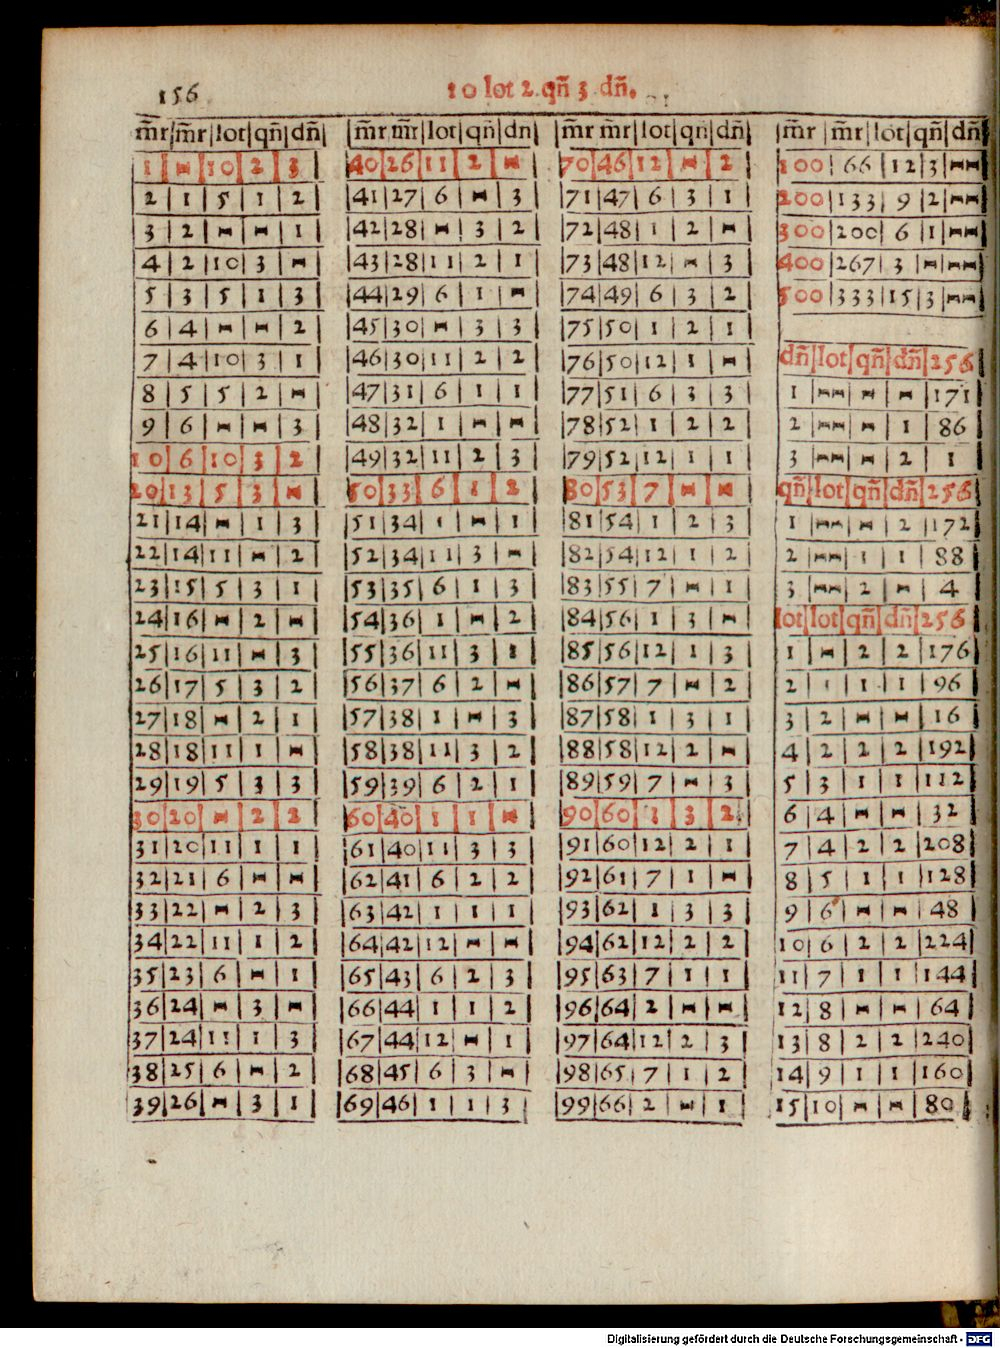 156
10 lot 2 qñ 3 dñ.
m̄r | m̄r | lot | qñ | dñ
1 | - | 10 | 2 | 3
2 | 1 | 5 | 1 | 2
3 | 2 | - | - | 1
4 | 2 | 10 | 3 | -
5 | 3 | 5 | 1 | 3
6 | 4 | - | - | 2
7 | 4 | 10 | 3 | 1
8 | 5 | 5 | 2 | -
9 | 6 | - | - | 3
10 | 6 | 10 | 3 | 2
20 | 13 | 5 | 3 | -
21 | 14 | - | 1 | 3
22 | 14 | 11 | - | 2
23 | 15 | 5 | 3 | 1
24 | 16 | - | 2 | -
25 | 16 | 11 | - | 3
26 | 17 | 5 | 3 | 2
27 | 18 | - | 2 | 1
28 | 18 | 11 | 1 | -
29 | 19 | 5 | 3 | 3
30 | 20 | - | 2 | 2
31 | 20 | 11 | 1 | 1
32 | 21 | 6 | - | -
33 | 22 | - | 2 | 3
34 | 22 | 11 | 1 | 2
35 | 23 | 6 | - | 1
36 | 24 | - | 3 | -
37 | 24 | 11 | 1 | 3
38 | 25 | 6 | - | 2
39 | 26 | - | 3 | 1
m̄r | m̄r | lot | qñ | dn
40 | 26 | 11 | 2 | -
41 | 27 | 6 | - | 3
42 | 28 | - | 3 | 2
43 | 28 | 11 | 2 | 1
44 | 29 | 6 | 1 | -
45 | 30 | - | 3 | 3
46 | 30 | 11 | 2 | 2
47 | 31 | 6 | 1 | 1
48 | 32 | 1 | - | -
49 | 32 | 11 | 2 | 3
50 | 33 | 6 | 1 | 2
51 | 34 | 1 | - | 1
52 | 34 | 11 | 3 | -
53 | 35 | 6 | 1 | 3
54 | 36 | 1 | - | 2
55 | 36 | 11 | 3 | 1
56 | 37 | 6 | 2 | -
57 | 38 | 1 | - | 3
58 | 38 | 11 | 3 | 2
59 | 39 | 6 | 2 | 1
60 | 40 | 1 | 1 | -
61 | 40 | 11 | 3 | 3
62 | 41 | 6 | 2 | 2
63 | 42 | 1 | 1 | 1
64 | 42 | 12 | - | -
65 | 43 | 6 | 2 | 3
66 | 44 | 1 | 1 | 2
67 | 44 | 12 | - | 1
68 | 45 | 6 | 3 | -
69 | 46 | 1 | 1 | 3
m̄r | m̄r | lot | qñ | dñ
70 | 46 | 12 | - | 2
71 | 47 | 6 | 3 | 1
72 | 48 | 1 | 2 | -
73 | 48 | 12 | - | 3
74 | 49 | 6 | 3 | 2
75 | 50 | 1 | 2 | 1
76 | 50 | 12 | 1 | -
77 | 51 | 6 | 3 | 3
78 | 52 | 1 | 2 | 2
79 | 52 | 12 | 1 | 1
80 | 53 | 7 | - | -
81 | 54 | 1 | 2 | 3
82 | 54 | 12 | 1 | 2
83 | 55 | 7 | - | 1
84 | 56 | 1 | 3 | -
85 | 56 | 12 | 1 | 3
86 | 57 | 7 | - | 2
87 | 58 | 1 | 3 | 1
88 | 58 | 12 | 2 | -
89 | 59 | 7 | - | 3
90 | 60 | 1 | 3 | 2
91 | 60 | 12 | 2 | 1
92 | 61 | 7 | 1 | -
93 | 62 | 1 | 3 | 3
94 | 62 | 12 | 2 | 2
95 | 63 | 7 | 1 | 1
96 | 64 | 2 | - | -
97 | 64 | 12 | 2 | 3
98 | 65 | 7 | 1 | 2
99 | 66 | 2 | - | 1
m̄r | m̄r | lot | qñ | dñ
100 | 66 | 12 | 3 | --
200 | 133 | 9 | 2 | --
300 | 200 | 6 | 1 | --
400 | 267 | 3 | - | --
500 | 333 | 15 | 3 | --
dñ | lot | qñ | dñ | 256
1 | -- | - | - | 171
2 | -- | - | 1 | 86
3 | -- | - | 2 | 1
qñ | lot | qñ | dñ | 256
1 | -- | - | 2 | 172
2 | -- | 1 | 1 | 88
3 | -- | 2 | - | 4
lot | lot | qñ | dñ | 256
1 | - | 2 | 2 | 176
2 | 1 | 1 | 1 | 96
3 | 2 | - | - | 16
4 | 2 | 2 | 2 | 192
5 | 3 | 1 | 1 | 112
6 | 4 | - | - | 32
7 | 4 | 2 | 2 | 208
8 | 5 | 1 | 1 | 128
9 | 6 | - | - | 48
10 | 6 | 2 | 2 | 224
11 | 7 | 1 | 1 | 144
12 | 8 | - | - | 64
13 | 8 | 2 | 2 | 240
14 | 9 | 1 | 1 | 160
15 | 10 | - | - | 80
Digitalisierung gefördert durch die Deutsche Forschungsgemeinschaft - DFG